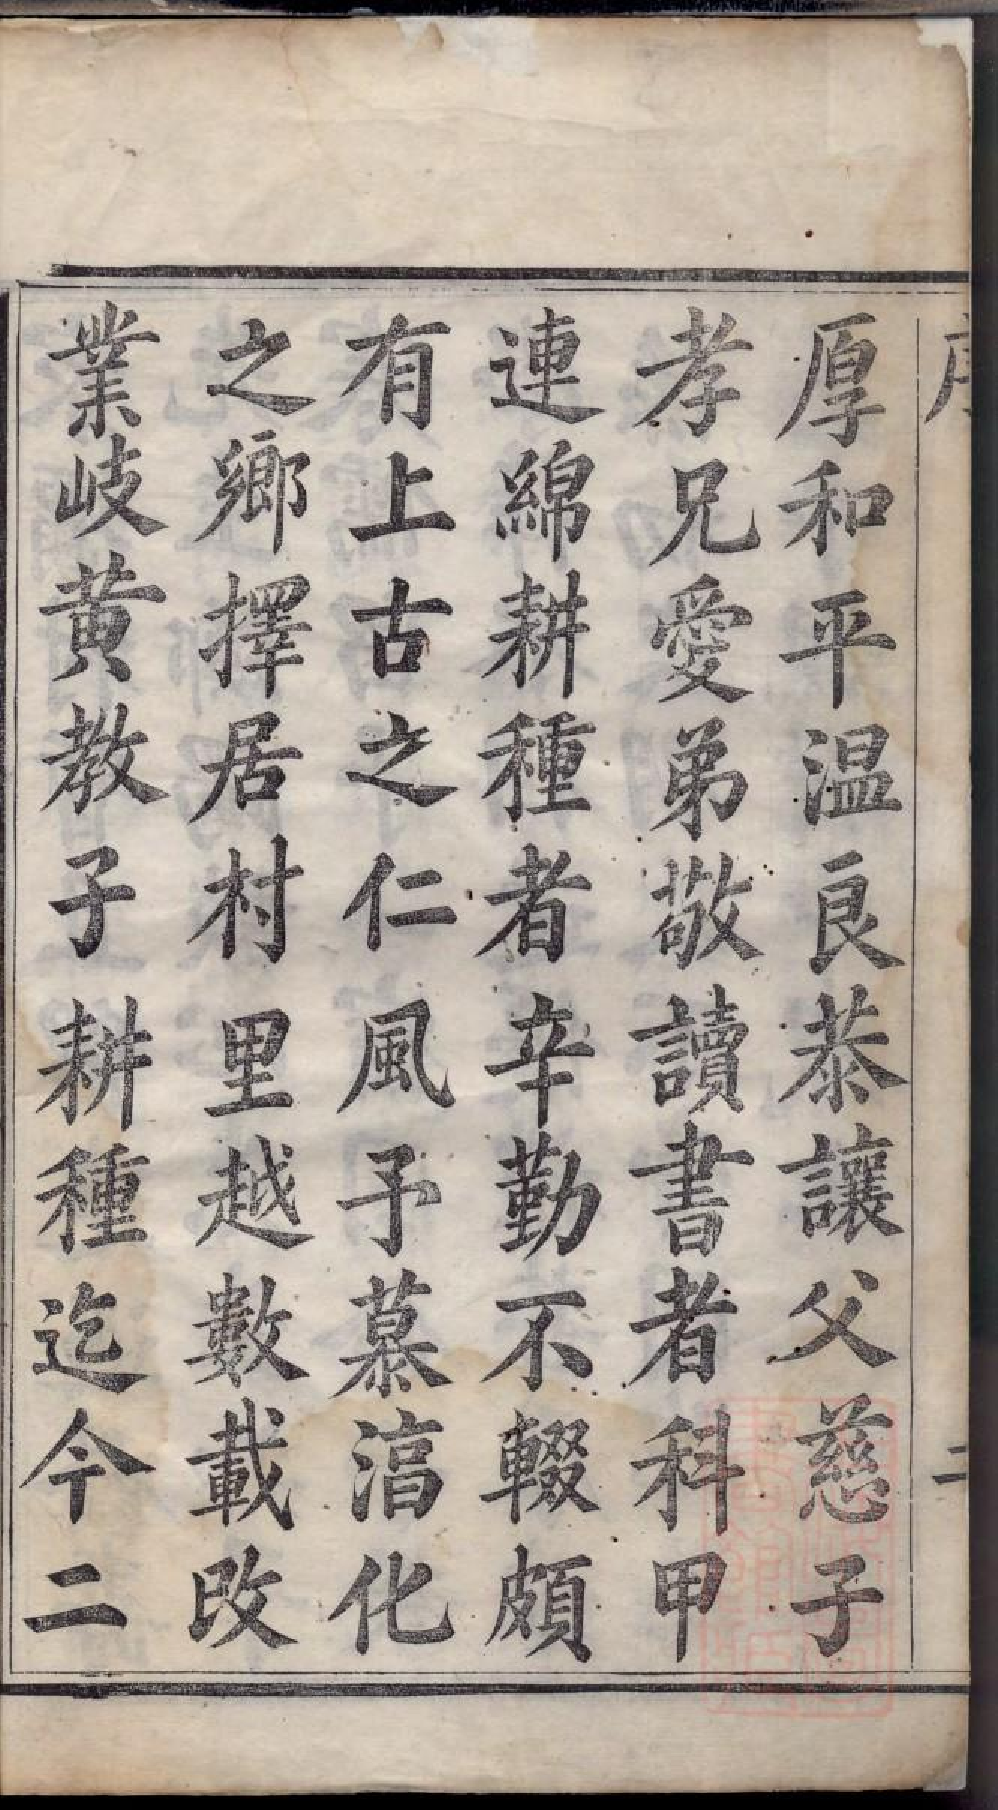 序
二
厚和平温良恭讓父慈子
孝兄愛弟敬讀書者科甲
連綿耕種者辛勤不輟頗
有上古之仁風予慕淳化
之鄉擇居村里越數載改
業岐黄教子耕種迄今二